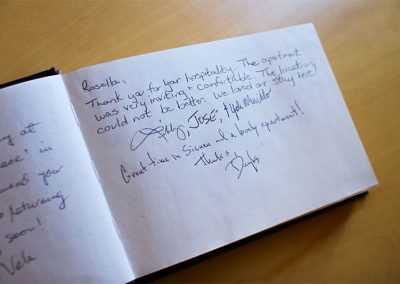 Rosella,
Thank you for your hospitality. The apartment
was very inviting & comfortable. The location
could not be better. We loved our stay here!
José, &
Great time in Sienna and a lovely apartment!
Thanks
y at
in
mend your
to returning
soon!
Vela